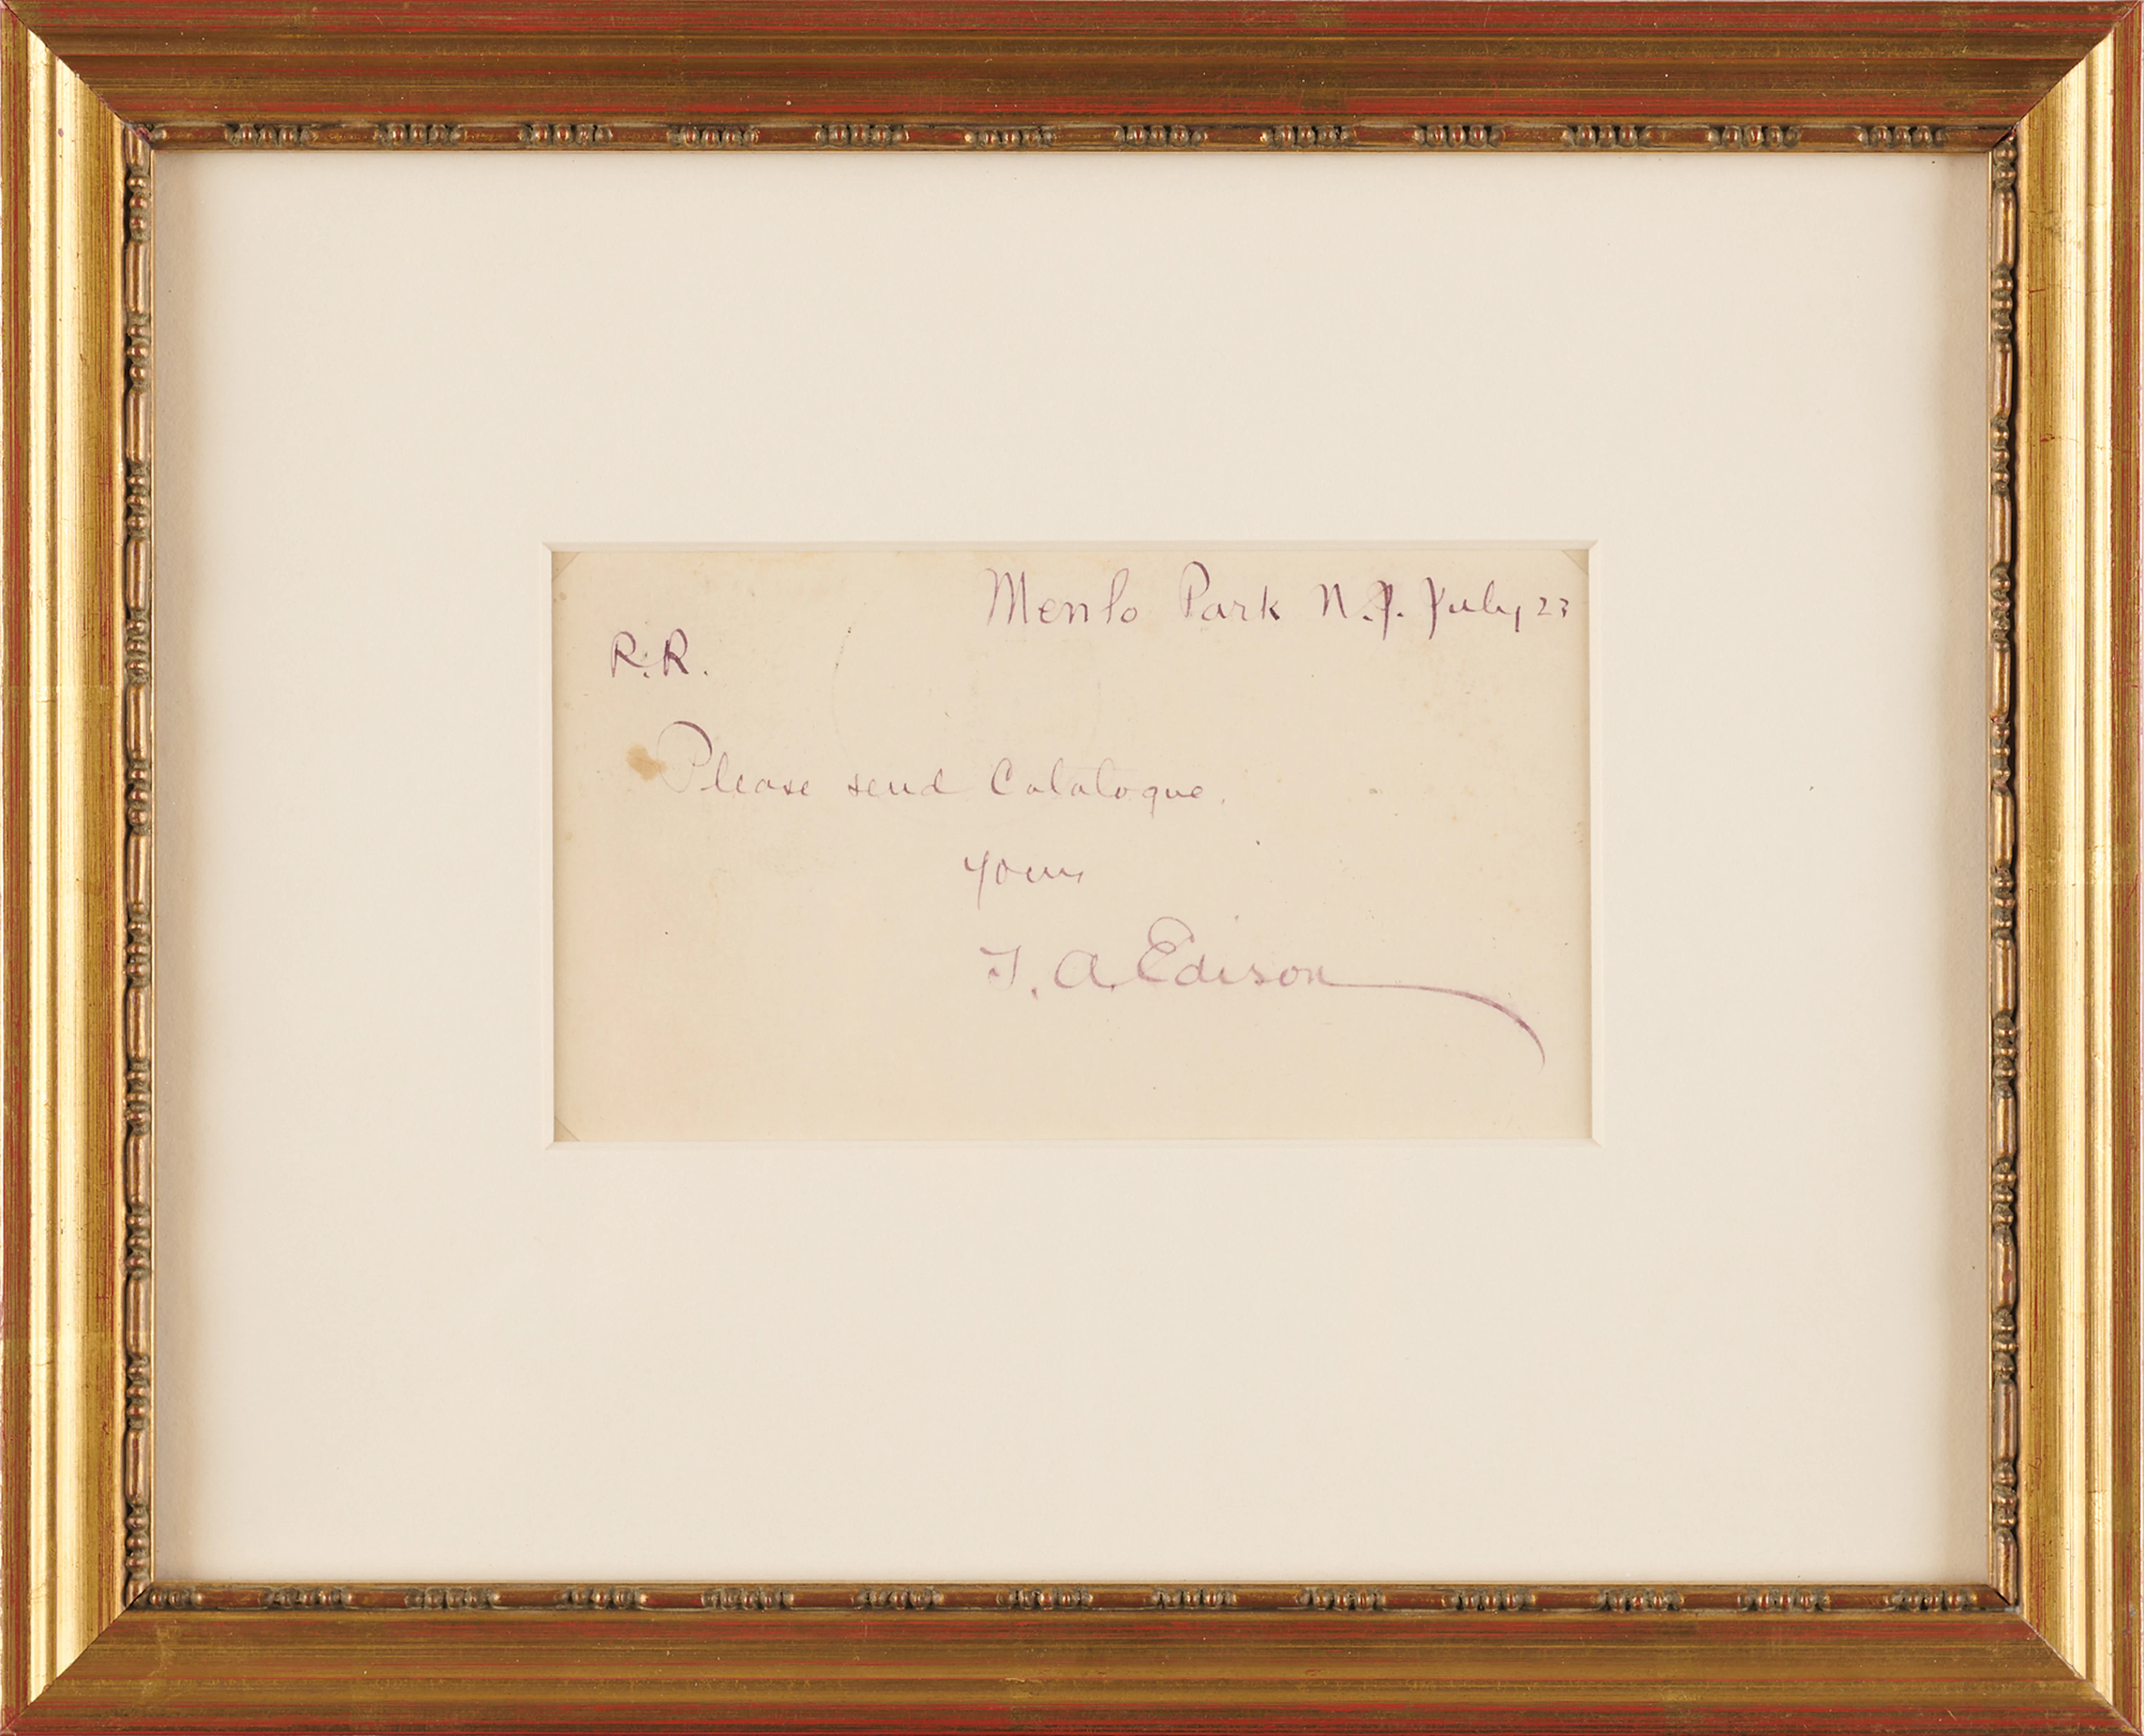 Menlo Park N.J. July 23
R.R.
Please send Catalogue.
Yours
T. A. Edison